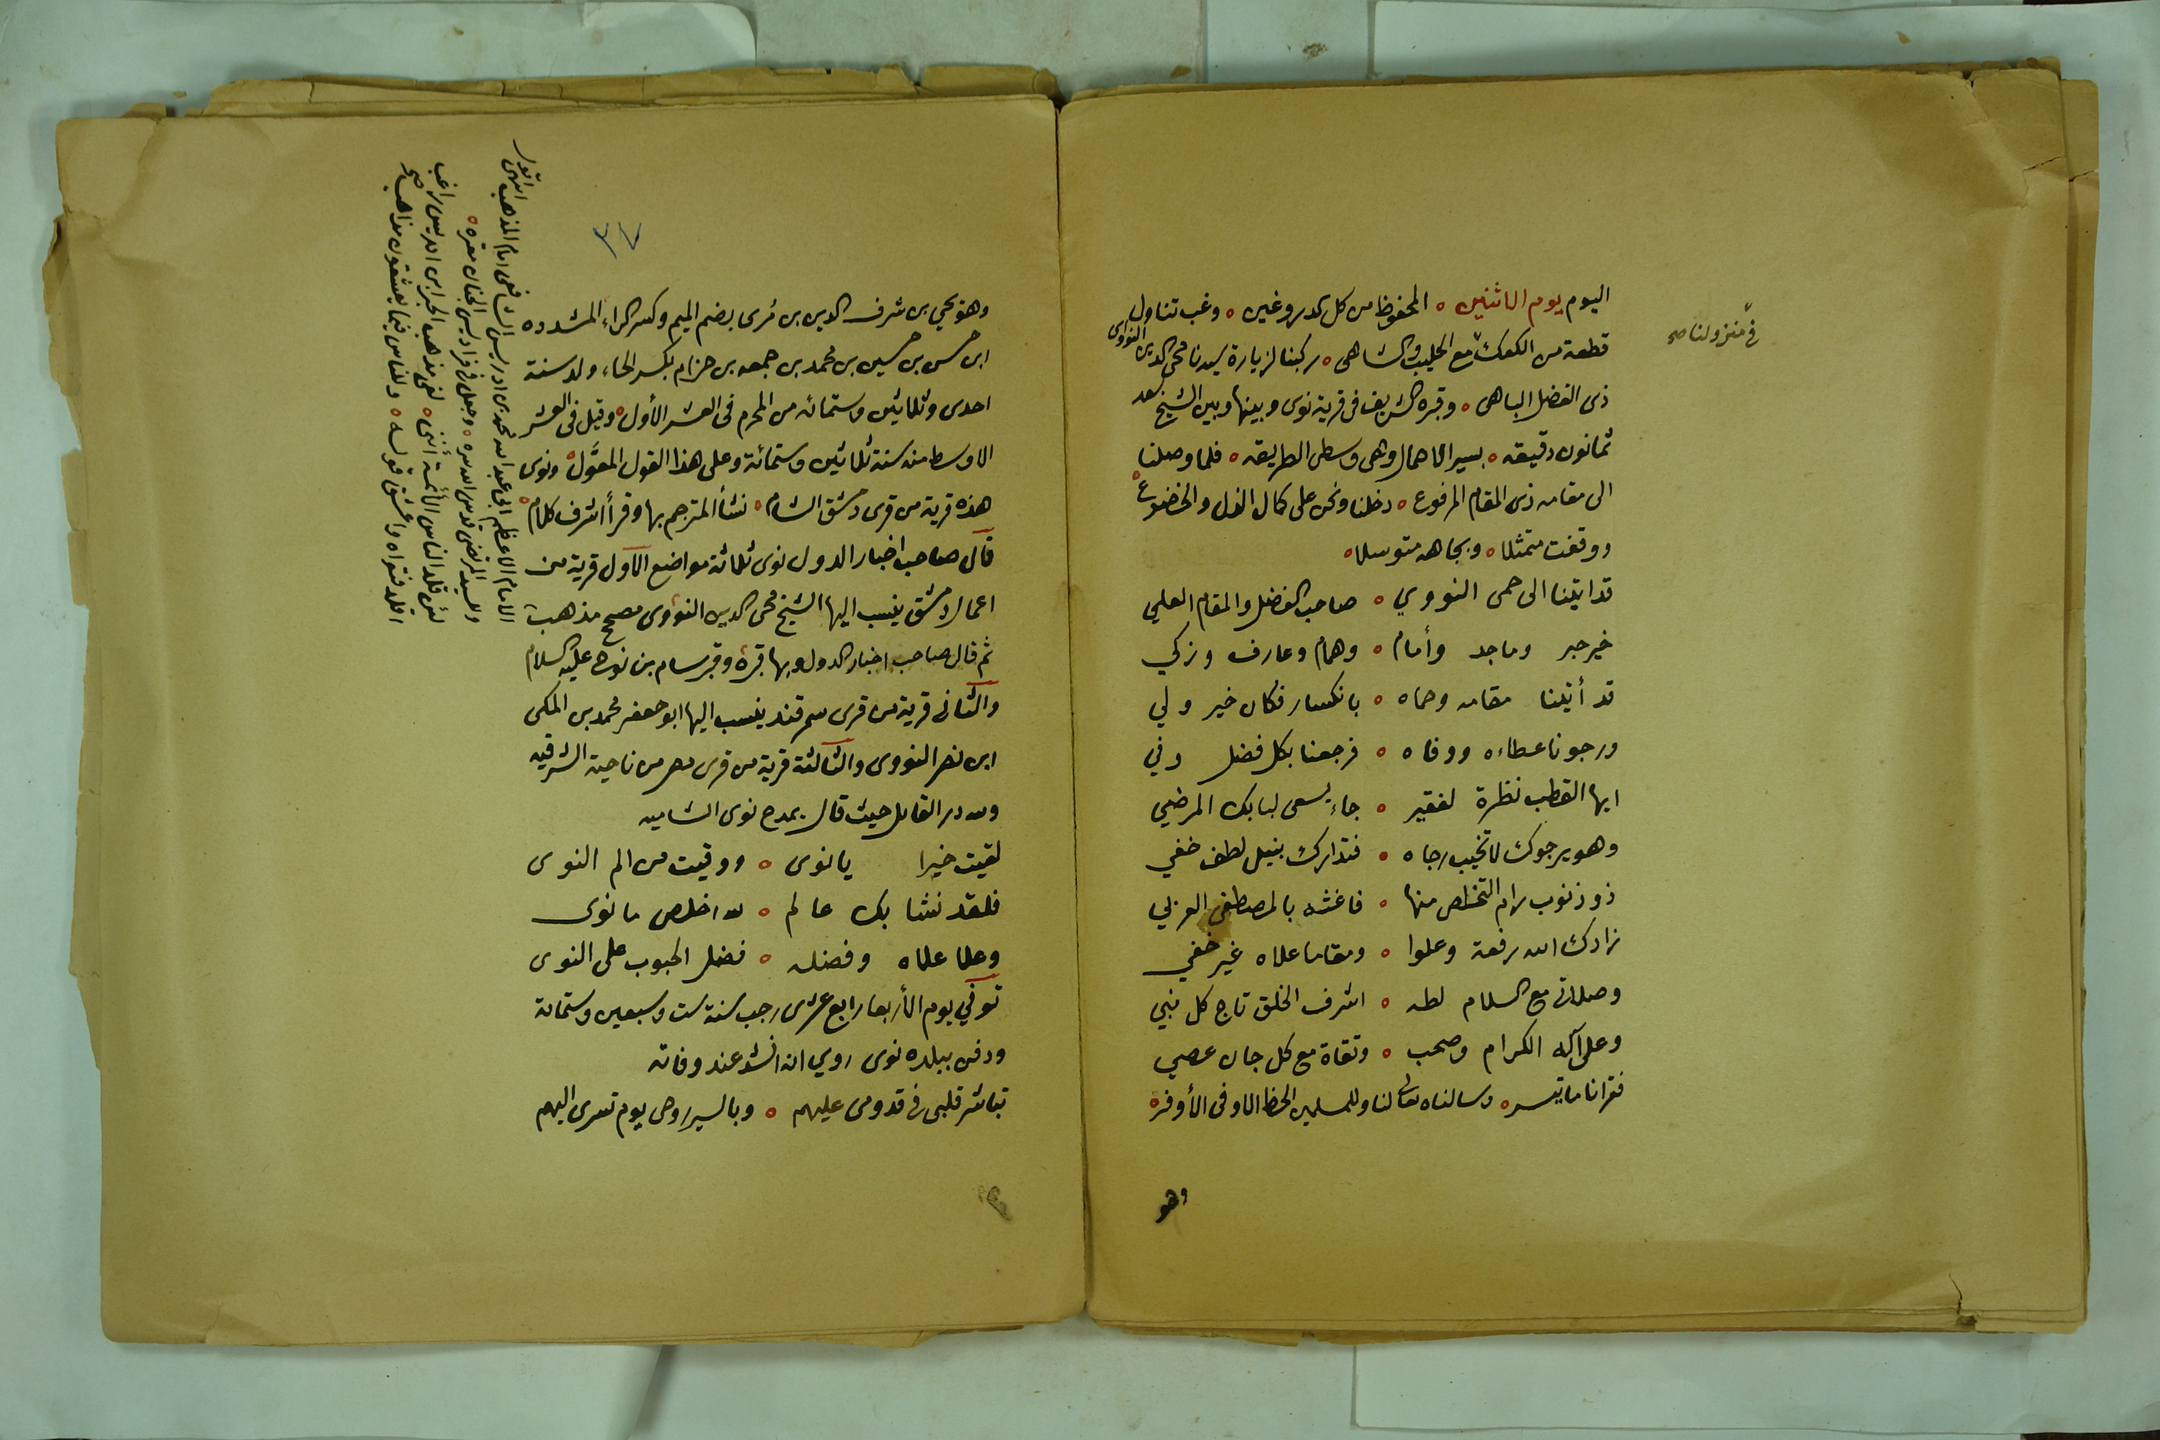 اليوم يوم الاثنين ٥ المحفوظ من كل كدر وغين ٥ وغب تناول
قطعة من الكعك مع الحليب والشاهى ٥ ركبنا لزيارة سيدنا محى الدين النووى
فى منزولنا صح
ذى الفضل الباهى ٥ وقبره الشريف فى قرية نوى وبينها وبين الشيخ سعد
ثمانون دقيقه ٥ بسير الاحمال وهى وسطى الطريقه ٥ فلما وصلنا
الى مقامه ذى المقام المرفوع ٥ دخلنا ونحن على كمال الذل والخضوع ٥
ووقفت متمثلا ٥ وبجاهه متوسلا ٥
قد اتينا الى حمى النووي ٥ صاحب الفضل والمقام العلي
خير حبر وماجد وأمام ٥ وهمام وعارف وزكي
قد أتينا مقامه وحماه ٥ بانكسار فكان خير ولي
ورجونا عطاءه ووفاه ٥ فرجعنا بكل فضل وفي
ايها القطب نظرة لفقير ٥ جاء يسعى لبابك المرضي
وهو يرجوك لا تخيب رجاه ٥ فتدارك بنيل لطف خفي
ذو ذنوب رام التخلص منها ٥ فاغثه بالمصطفى العربي
زادك الله رفعة وعلوا ٥ ومقاما علاه غير خفي
وصلاتى مع السلام لطه ٥ اشرف الخلق تاج كل نبي
وعلى آله الكرام وصحب ٥ وتقاة مع كل جان عصي
فقرانا ما تيسر ٥ وسالناه تعالى لنا وللمسلمين الحظ الاوفى الأوفر ٥
وهو
٣٧
وهو يحيى بن شرف الدين بن مُرى بضم الميم وكسر الراء المشدده
ابن حسن بن حسين بن محمد بن جمعه بن حزام بكسر الحاء ولد سنة
احدى وثلاثين وستمائه من المحرم فى العشر الأول ٥ وقيل فى العشر
الاوسط منه سنة ثلاثين وستمائة وعلى هذا القول المعوَّل ٥ ونوى
هذه قرية من قرى دمشق الشام ٥ نشأ المترجم بها وقرأ اشرف كلام ٥
قال صاحب اخبار الدول نوى ثلاثة مواضع الأول قرية من
اعمال دمشق ينسب اليها الشيخ محى الدين النووى مصحح مذهب
ثم قال صاحب اخبار الدول وبها قبره وقبر سام بن نوح عليه السلام
والثانى قرية من قرى سمرقند ينسب اليها ابو جعفر محمد بن المكى
ابن نصر النووى والثالثة قرية من قرى مصر من ناحية الشرقيه
ولله در القايل حيث قال يمدح نوى الشاميه
لقيت خيرا يا نوى ٥ ووقيت من الم النوى
فلقد نشا بك عالم ٥ لله اخلص ما نوى
وعلا علاه وفضله ٥ فضل الحبوب على النوى
توفي يوم الأربعا رابع عشرى رجب سنة ست وسبعين وستمائة
ودفن ببلده نوى روي انه انشد عند وفاته
تباشر قلبى فى قدومى عليهم ٥ وبالسير روحى يوم تسرى اليهم
الامام الاعظم ابى عبد الله محمد بن ادريس الشافعى امام المذهب انتهى
والسيد المرتضى قدس الله سره ٥ وجعل فى فراديس الجنان مقره ٥
لئن قلد الناس الأئمة أننى ٥ لفى مذهب الحبر ابن ادريس راغب
اقلد فتواه واعشق قوله ٥ وللناس فيما يعشقون مذاهب صح